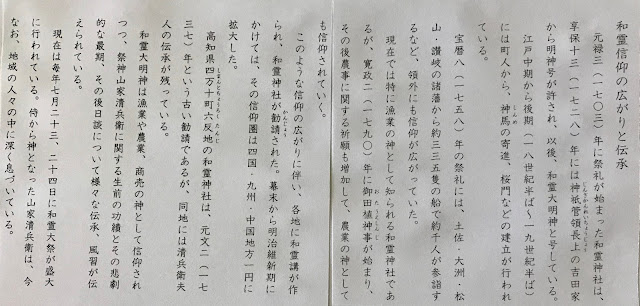 和霊信仰の広がりと伝承
元禄三（一七〇三）年に祭礼が始まった和霊神社は、
享保十三（一七二八）年には神祇管領長上の吉田家
から明神号が許され、以後、和霊大明神と号している。
江戸中期から後期（一八世紀半ば～一九世紀半ば）
には町人から、神馬の寄進、桜門などの建立が行われ
ている。
宝暦八（一七五八）年の祭礼には、土佐・大洲・松
山・讃岐の諸藩から約三三五隻の船で約千人が参詣す
るなど、領外にも信仰が広がっていた。
現在では特に漁業の神として知られる和霊神社であ
るが、寛政二（一七九〇）年に御田植神事が始まり、
その後農事に関する祈願も増加して、農業の神として
も信仰されていく。
このような信仰の広がりに伴い、各地に和霊講が作
られ、和霊神社が勧請された。幕末から明治維新期に
かけては、その信仰圏は四国・九州・中国地方一円に
拡大した。
高知県四万十町六反地の和霊神社は、元文二（一七
三七）年という古い勧請であるが、同地には清兵衛夫
人の伝承が残っている。
和霊大明神は漁業や農業、商売の神として信仰され
つつ、祭神山家清兵衛に関する生前の功績とその悲劇
的な最期、その後日談について様々な伝承、風習が伝
えられている。
現在は毎年七月二十三、二十四日に和霊大祭が盛大
に行われている。侍から神となった山家清兵衛は、今
なお、地域の人々の中に深く息づいている。